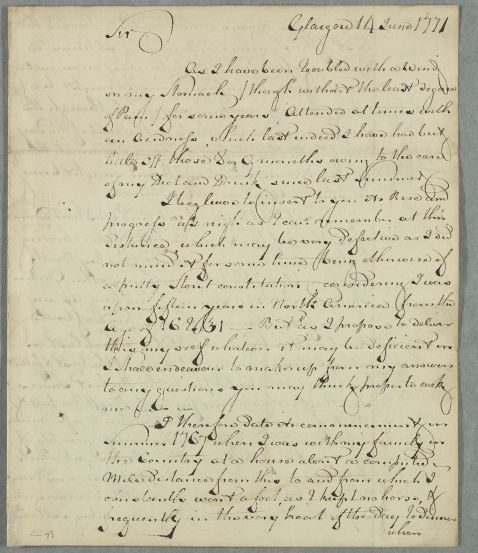 Glasgow 14 June 1771
Sir
As I have been troubled with a Wind
on my Stomach (though without the least degree
of Pain) for some years, Attended at times with
an Acidness, which last indeed I have had but
little off those 8 or 9 months owing to the care
of my Diet and Drink since last Summer
I beg leave to insert to you its Rise and
progress as nigh as I can remember at this
distance, which may be very defective as I did
not mind it for some time being otherwise of
a pretty stout constitution, considering I was
upon fifteen years in North America from the
age of 16 to 31 — But as I propose to deliver
this my self whatever it may be deficient in
I shall endeavour to make up from my answers
to any questions you may think proper to ask
me
I therefore date its commencement in
Summer 1767 when I was with my family in
the Country at a house about a computed
Mile distance from this to and from which I
constantly went a foot, as I kept no horse, &
frequently in the very heat of the day to dinner
when